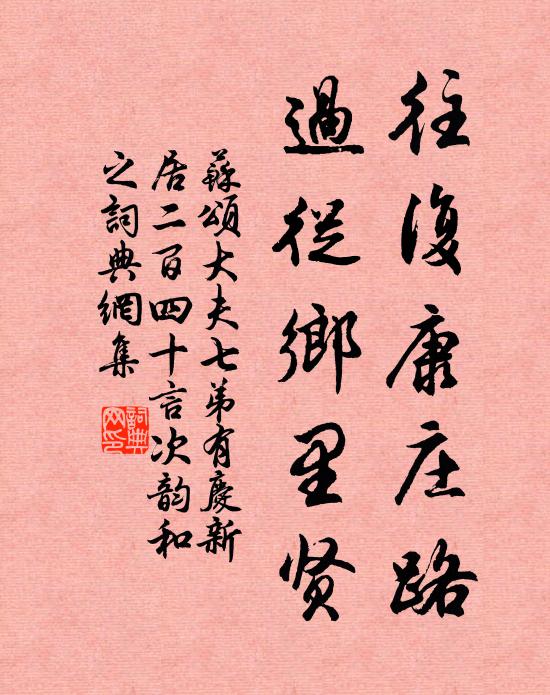 往復康庄路
過從鄉里賢
蘇頌大夫七弟有慶新
居二百四十言次韵和
之詞典網集
詞典
网印